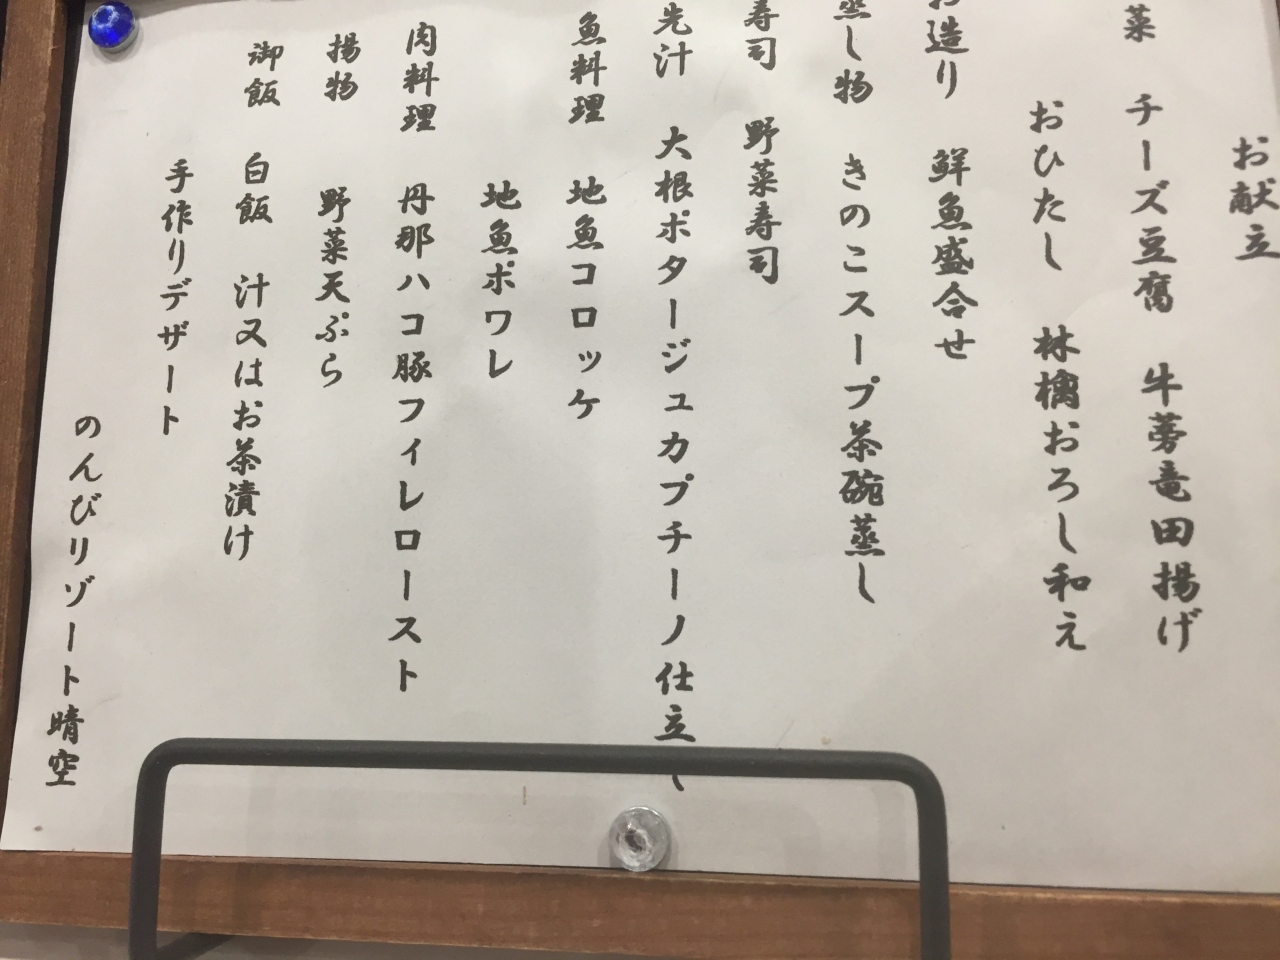 お献立
菜 チーズ豆腐 牛蒡竜田揚げ
おひたし 林檎おろし和え
お造り 鮮魚盛合せ
蒸し物 きのこスープ茶碗蒸し
寿司 野菜寿司
先汁 大根ポタージュカプチーノ仕立し
魚料理 地魚コロッケ
地魚ポワレ
肉料理 丹那ハコ豚フィレロースト
揚物 野菜天ぷら
御飯 白飯 汁又はお茶漬け
手作りデザート
のんびリゾート晴空